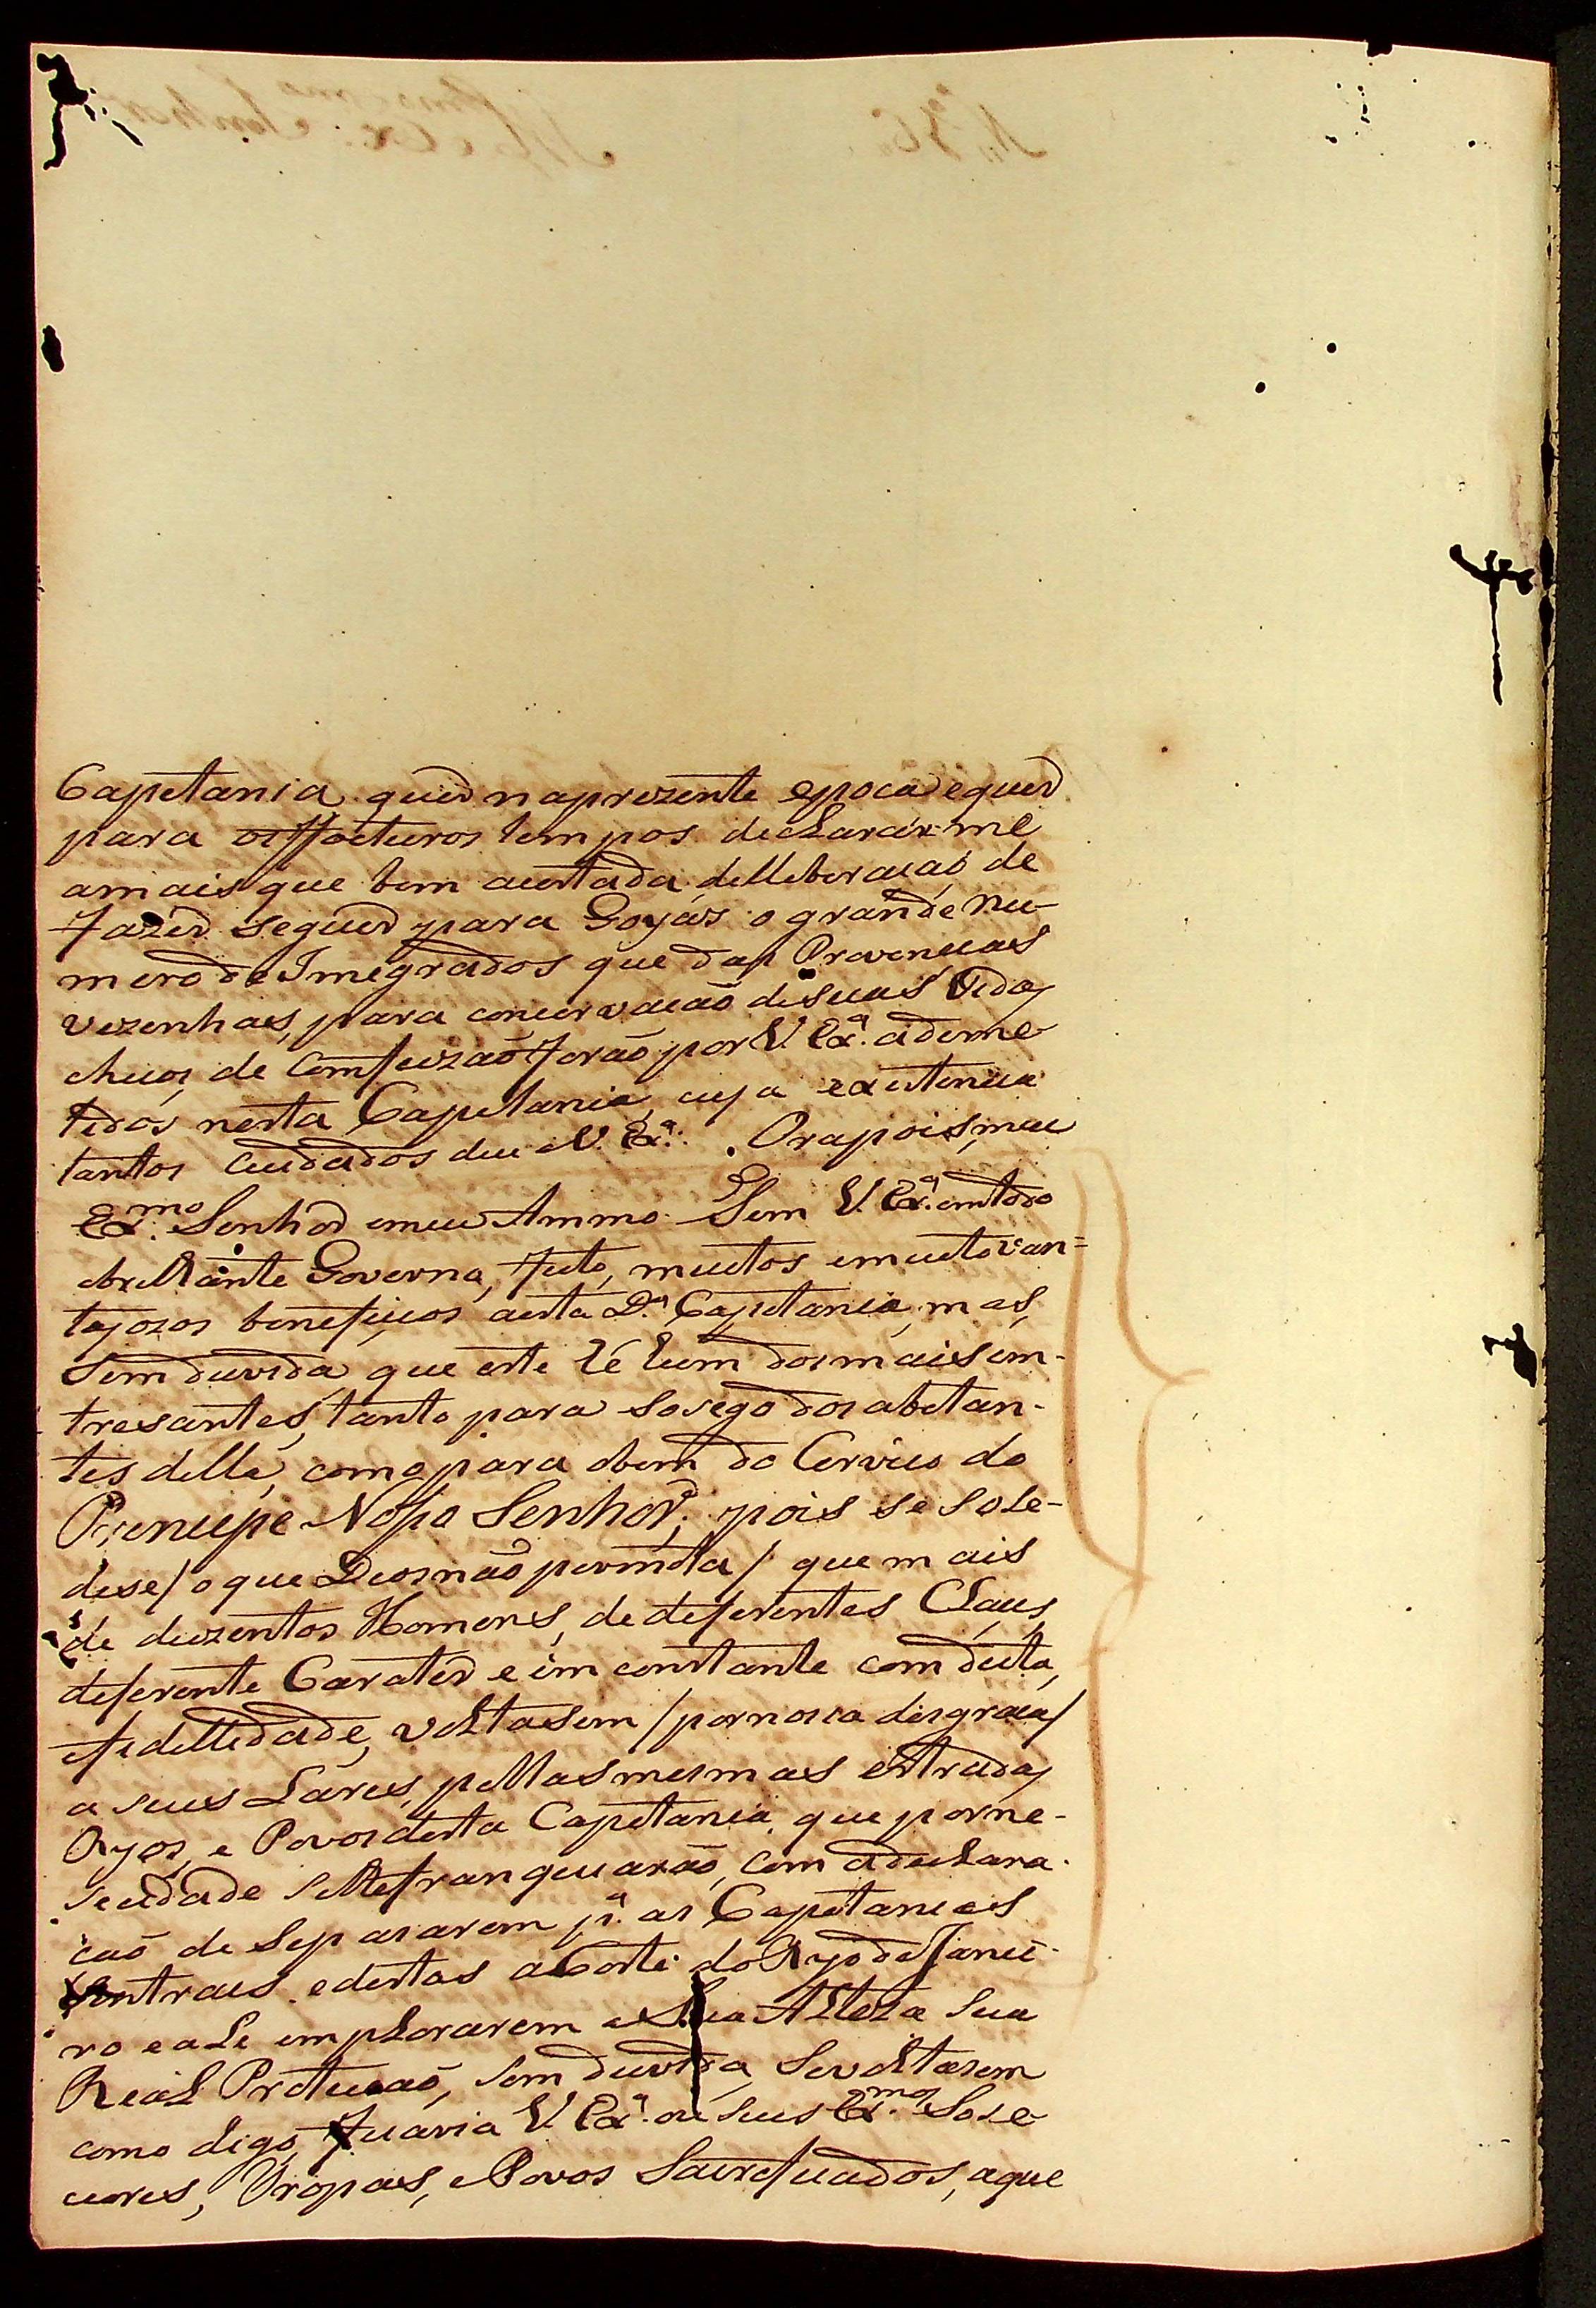 Capetania quer naprezente epoca equer
para osffucturos tempos declarar-me
amais que bem acertada delleberacaõ de
fazer seguer para Goyás o grande nu-
mero de Imegrados que das Provencias
vezenhas, para concervacaõ de suas Vidas
cheios de Comfuzaõ foraõ por V. Exª.ademe
tedos nesta Capetania, cuja existencia
tantos Cuidados deu a V. Exª. Orapois, meu
Exmo. Senhor emeu Ammo. Tem V. Exª. emtodo
obrelhante Governo, feito, muitos emuito van=
tajozos beneficios aesta Dª. Capetania, mas,
Sem duvida que este hé hum dos mais em-
tresantes, tanto para Sosego dos abetan-
tes della, como para obem do Cervico do
Prencepe Nosso Senhor; pois se sose-
dese / o que Deos naõ permita / que mais
de duzentos Homens, de deferentes Claces,
deferente Carater e imconstante comduta,
efedelledade, voltasem / por nosca disgraca /
a seus Lares, pellas mesmas estradas
Ryos, e Povos desta Capetania, que porne-
secidade selhefranquearaõ, com adeclara-
caõ de Sepasarem pª. as Capetanias
Sentraes, edestas aCorte do Ryo de Janei-
ro eale emplorarem aSua Alteza Sua
Real Protecaõ, sem duvida, Sevoltasem
como digo, ficaria V. Exª. ou seus Exmos. Sose-
cores, Tropas, ePovos Sacreficados, aque